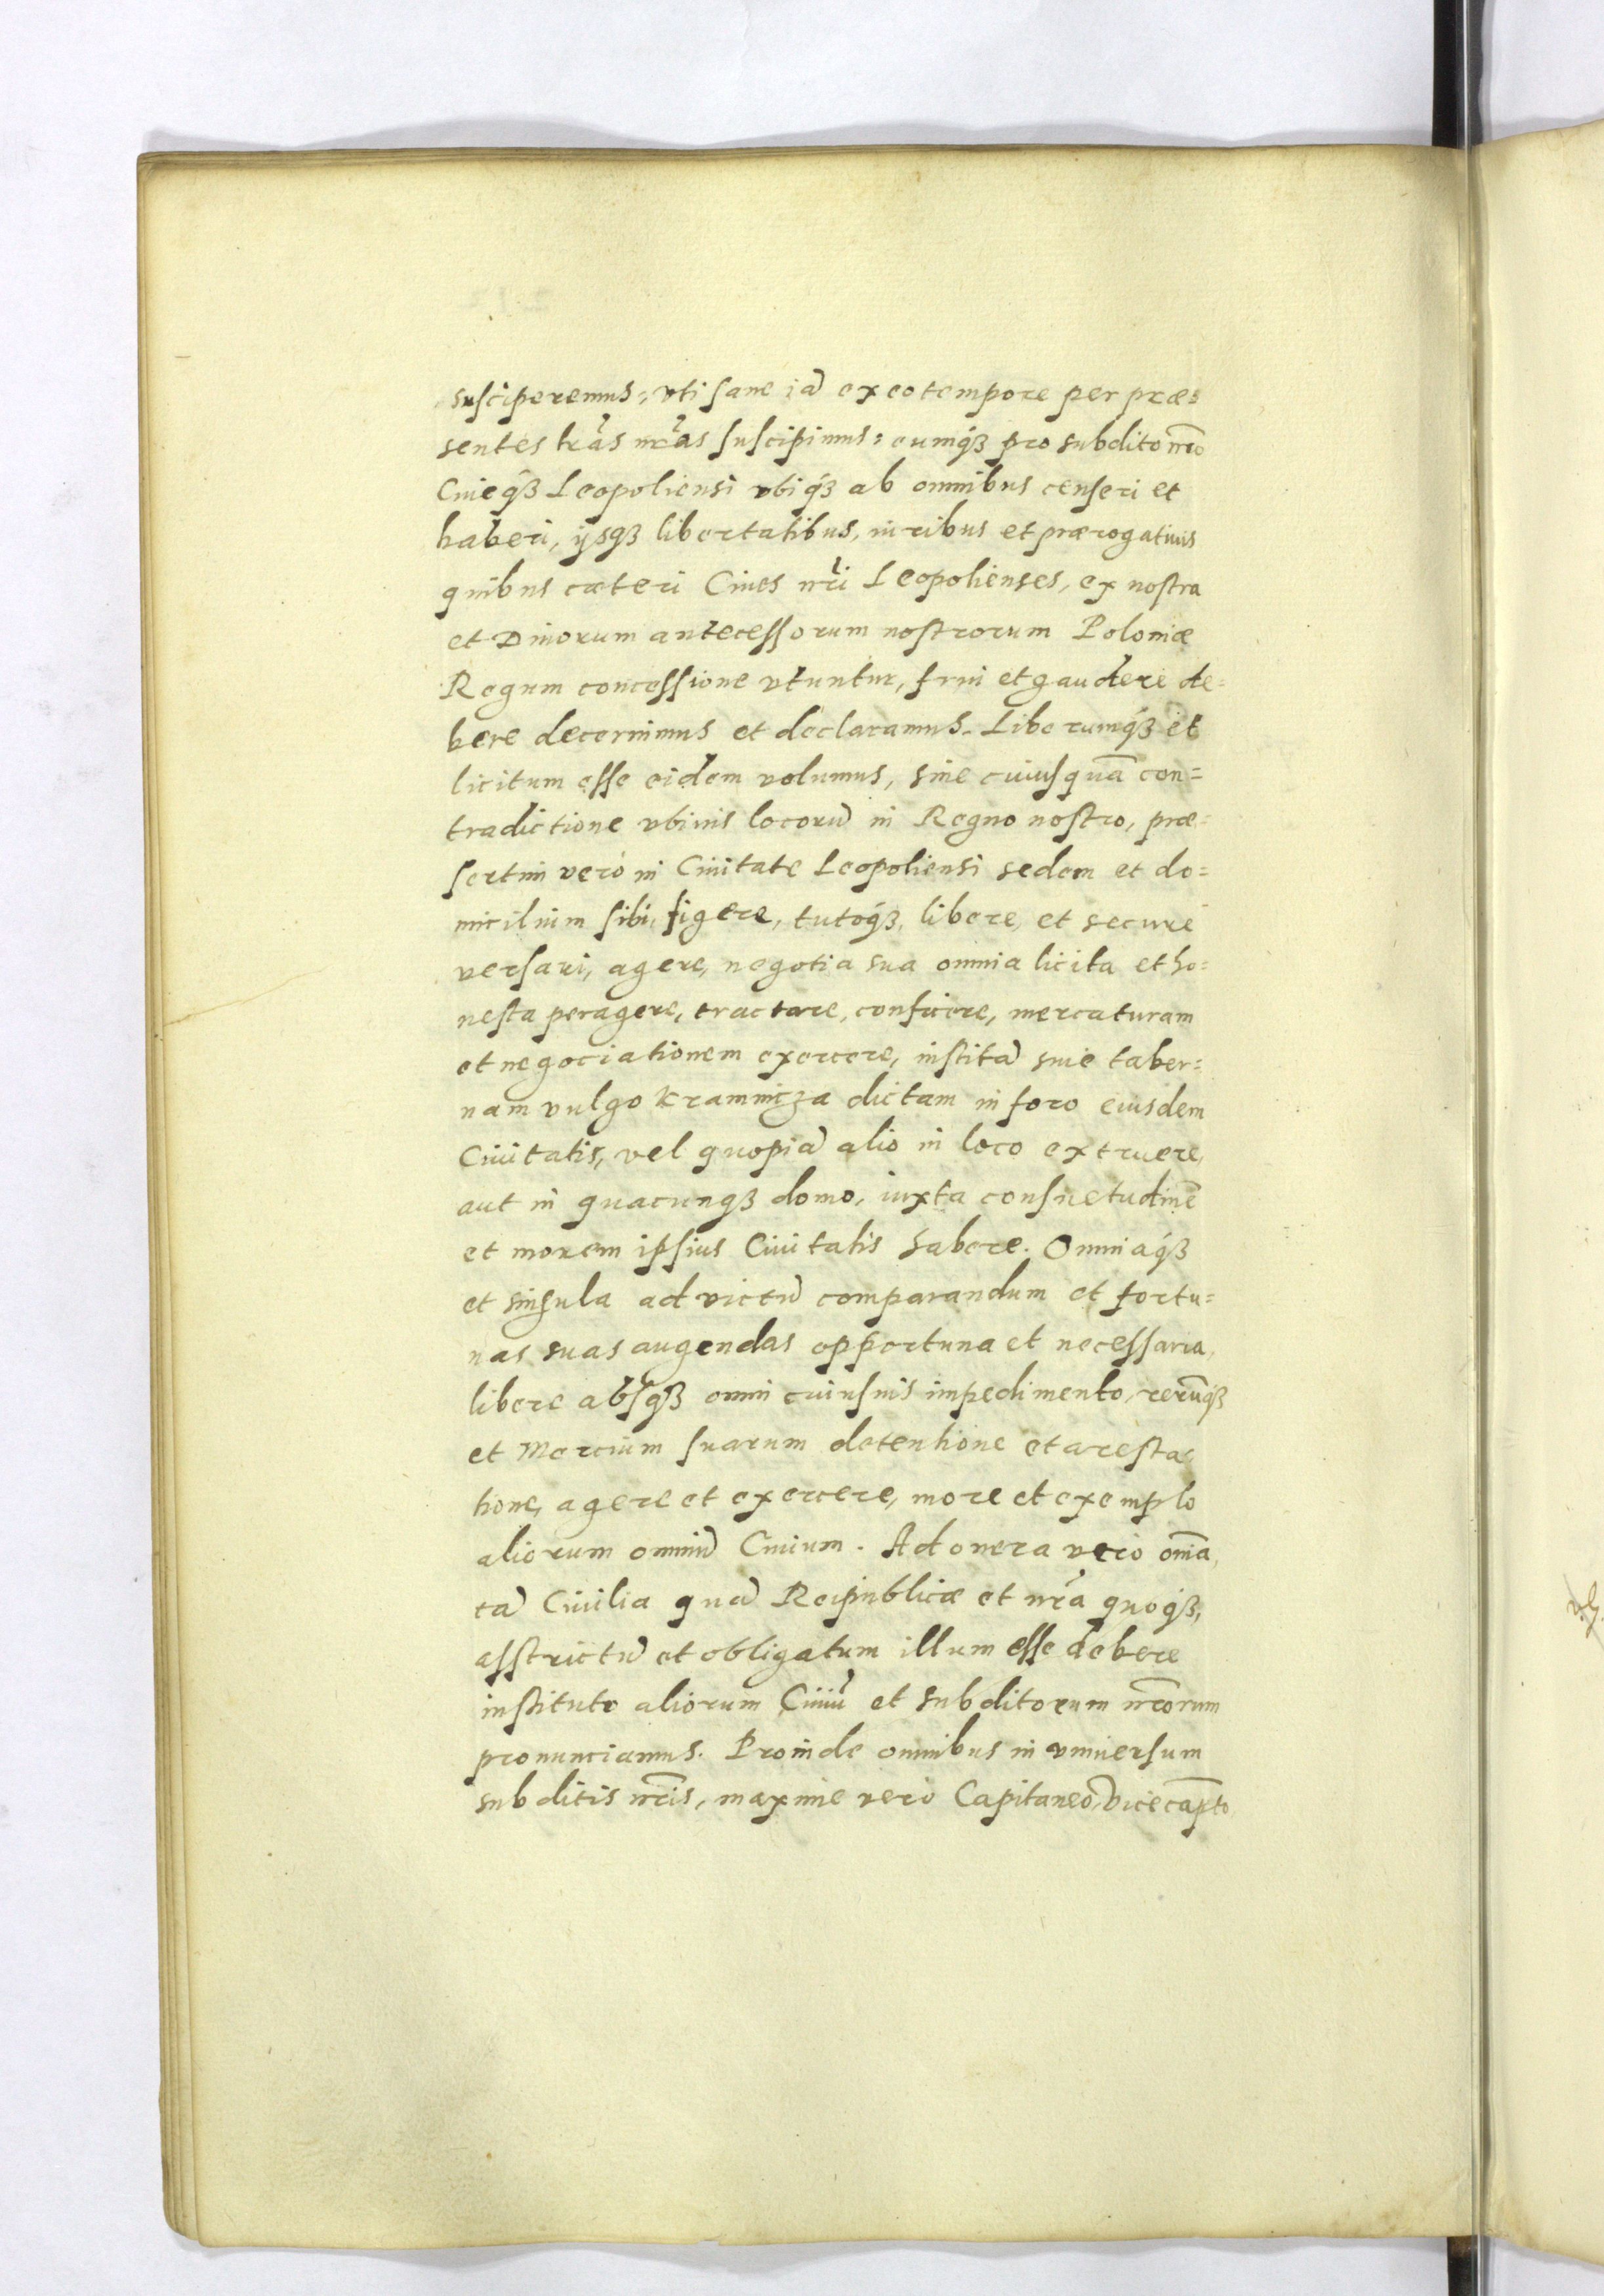 susciperemus, vti sane iã ex eo tempore per præ=
sentes lr̃as nr̃as suscipimus: eumq́ꝫ pro subdito nr̃o
Ciueq́ꝫ Leopoliensi vbiq́ꝫ ab omnibus censeri et
haberi, ijsqꝫ libertatibus, iuribus et prærogatiuis
quibus cæteri Ciues nr̃i Leopolienses, ex nostra
et Diuorum antecessorum nostrorum Poloniæ
Regum concessione vtuntur, frui et gaudere de=
bere decernimus et declaramus. Liberumq́ꝫ et
licitum esse eidem volumus, sine cuiusquã con=
tradictione vbiuis locorũ in Regno nostro, præ=
sertim verò in Ciuitate Leopoliensi sedem et do=
micilium sibi, figere, tutoq́ꝫ, libere, et secure
versari, agere, negotia sua omnia licita et ho=
nesta peragere, tractare, conficere, mercaturam
et negociationem exercere, institã siue taber=
nam vulgo kramnicza dictam in foro eiusdem
Ciuitatis, vel quopiã alio in loco extruere,
aut in quacunqꝫ domo, iuxta consuetudinẽ
et morem ipsius Ciuitatis habere. Omniaq́ꝫ
et singula ad victũ comparandum et fortu=
nas suas augendas opportuna et necessaria,
libere absqꝫ omni cuiusuis impedimento, rerũqꝫ
et Mercium suarum detentione et aresta=
tione, agere et exercere, more et exemplo
aliorum omniũ Ciuium. Ad onera vero om̃ia,
tã Ciuilia quã Reipublicæ et nr̃a quoqꝫ,
asstrictũ et obligatum illum esse debere
instituto aliorum Ciuiũ et subditorum nr̃orum
pronunciamus. Proinde omnibus in vniuersum
subditis nr̃is, maxime vero Capitaneo, Vicecapto